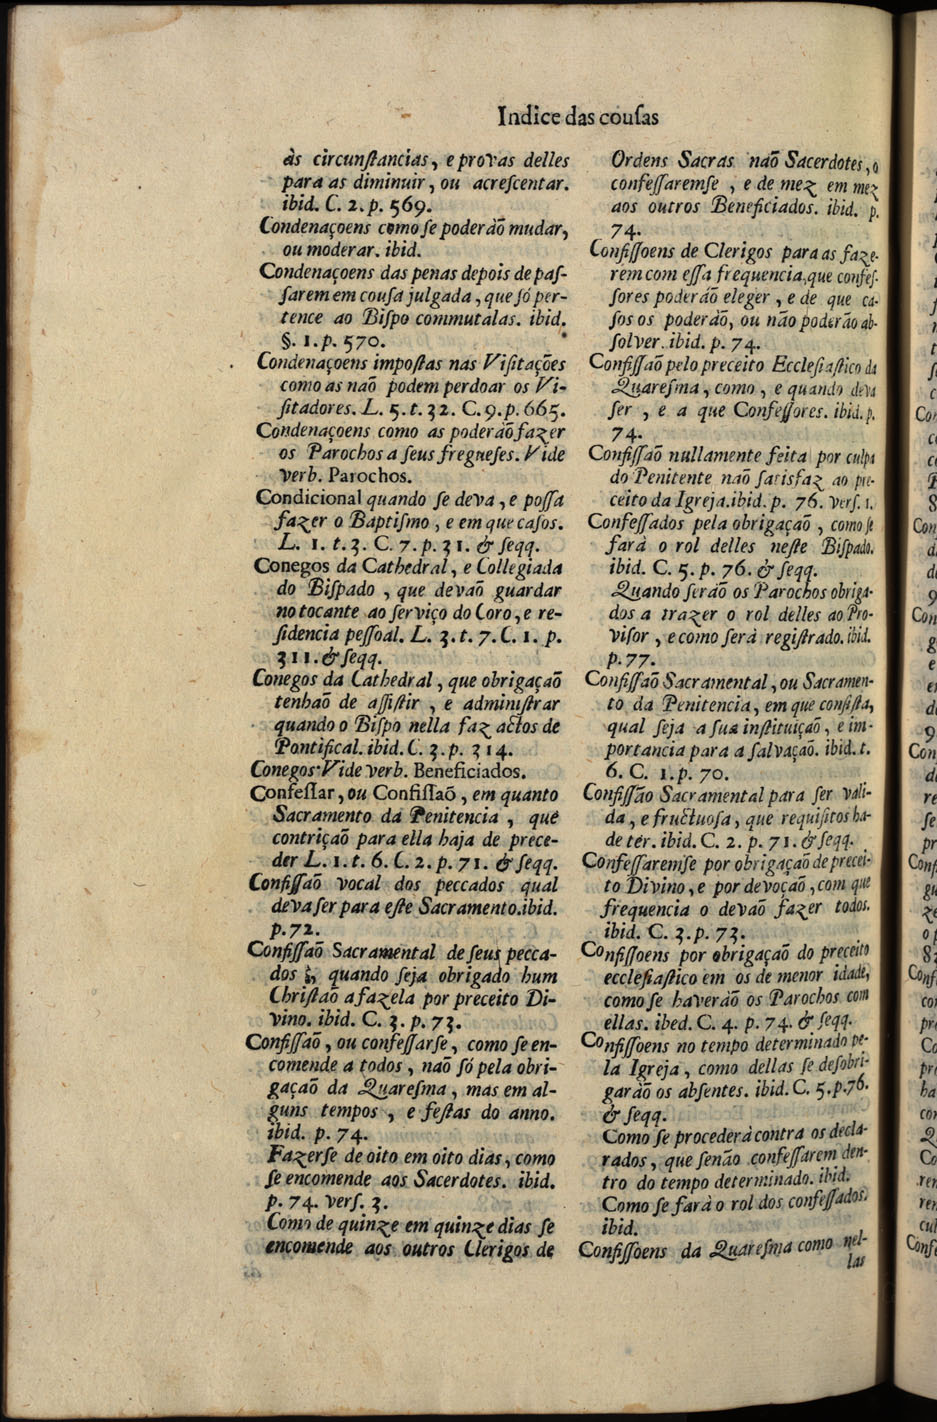 Indice das couſas
às circunſtancias, e provas delles
para as diminuir, ou acreſcentar.
ibid. C. 2. p. 569.
Condenaçoens como ſe poderàõ mudar,
ou moderar. ibid.
Condenaçoens das penas depois de paſ-
ſarem em couſa julgada, que ſó per-
tence ao Biſpo commutalas. ibid.
§. 1. p. 570.
Condenaçoens impoſtas nas Viſitações
como as naõ podem perdoar os Vi-
ſitadores. L. 5. t. 32. C. 9. p. 665.
Condenaçoens como as poderàõ fazer
os Parochos a ſeus fregueſes. Vide
verb. Parochos.
Condicional quando ſe deva, e poſſa
fazer o Baptiſmo, e em que caſos.
L. 1. t. 3. C. 7. p. 31. & ſeqq.
Conegos da Cathedral, e Collegiada
do Biſpado, que devaõ guardar
no tocante ao ſerviço do Coro, e re-
ſidencia peſſoal. L. 3. t. 7. C. 1. p.
311. & ſeqq.
Conegos da Cathedral, que obrigaçaõ
tenhaõ de aſſiſtir, e adminiſtrar
quando o Biſpo nella faz actos de
Pontifical. ibid. C. 3. p. 314.
Conegos. Vide verb. Beneficiados.
Confeſſar, ou Confiſſaõ, em quanto
Sacramento da Penitencia, que
contriçaõ para ella haja de prece-
der L. 1. t. 6. C. 2. p. 71. & ſeqq.
Confiſſaõ vocal dos peccados qual
deva ſer para eſte Sacramento. ibid.
p. 72.
Confiſſaõ Sacramental de ſeus pecca-
dos, quando ſeja obrigado hum
Chriſtaõ a fazela por preceito Di-
vino. ibid. C. 3. p. 73.
Confiſſaõ, ou confeſſarſe, como ſe en-
comende a todos, naõ ſó pela obri-
gaçaõ da Quareſma, mas em al-
guns tempos, e feſtas do anno.
ibid. p. 74.
Fazerſe de oito em oito dias, como
ſe encomende aos Sacerdotes. ibid.
p. 74. verſ. 3.
Como de quinze em quinze dias ſe
encomende aos outros Clerigos de
Ordens Sacras naõ Sacerdotes, o
confeſſaremſe, e de mez em mez
aos outros Beneficiados. ibid. p.
74.
Confiſſoens de Clerigos para as faze-
rem com eſſa frequencia, que confeſ-
ſores poderáõ eleger, e de que ca-
ſos os poderáõ, ou não poderão ab-
ſolver. ibid. p. 74.
Confiſſaõ pelo preceito Eccleſiaſtico da
Quareſma, como, e quando deva
ſer, e a que Confeſſores. ibid. p.
74.
Confiſſaõ nullamente feita por culpa
do Penitente naõ ſatisfaz ao pre-
ceito da Igreja. ibid. p. 76. verſ. 1.
Confeſſados pela obrigaçaõ, como ſe
fará o rol delles neſte Biſpado.
ibid. C. 5. p. 76. & ſeqq.
Quando ſerão os Parochos obriga-
dos a trazer o rol delles ao Pro-
viſor, e como ſerà regiſtrado. ibid.
p. 77.
Confiſſaõ Sacramental, ou Sacramen-
to da Penitencia, em que conſiſta,
qual ſeja a ſua inſtituiçaõ, e im-
portancia para a ſalvaçaõ. ibid. t.
6. C. 1. p. 70.
Confiſſão Sacramental para ſer vali-
da, e fructuoſa, que requiſitos ha-
de ter. ibid. C. 2. p. 71. & ſeqq.
Confeſſaremſe por obrigaçaõ de precei-
to Divino, e por devoçaõ, com que
frequencia o devaõ fazer todos.
ibid. C. 3. p. 73.
Confiſſoens por obrigaçaõ do preceito
eccleſiaſtico em os de menor idade,
como ſe haveráõ os Parochos com
ellas. ibed. C. 4. p. 74. & ſeqq.
Confiſſoens no tempo determinado pe-
la Igreja, como dellas ſe deſobri-
garáõ os abſentes. ibid. C. 5. p. 76.
& ſeqq.
Como ſe procederà contra os decla-
rados, que ſenão confeſſarem den-
tro do tempo determinado. ibid.
Como ſe farà o rol dos confeſſados.
ibid.
Confiſſoens da Quareſma como nel-
las